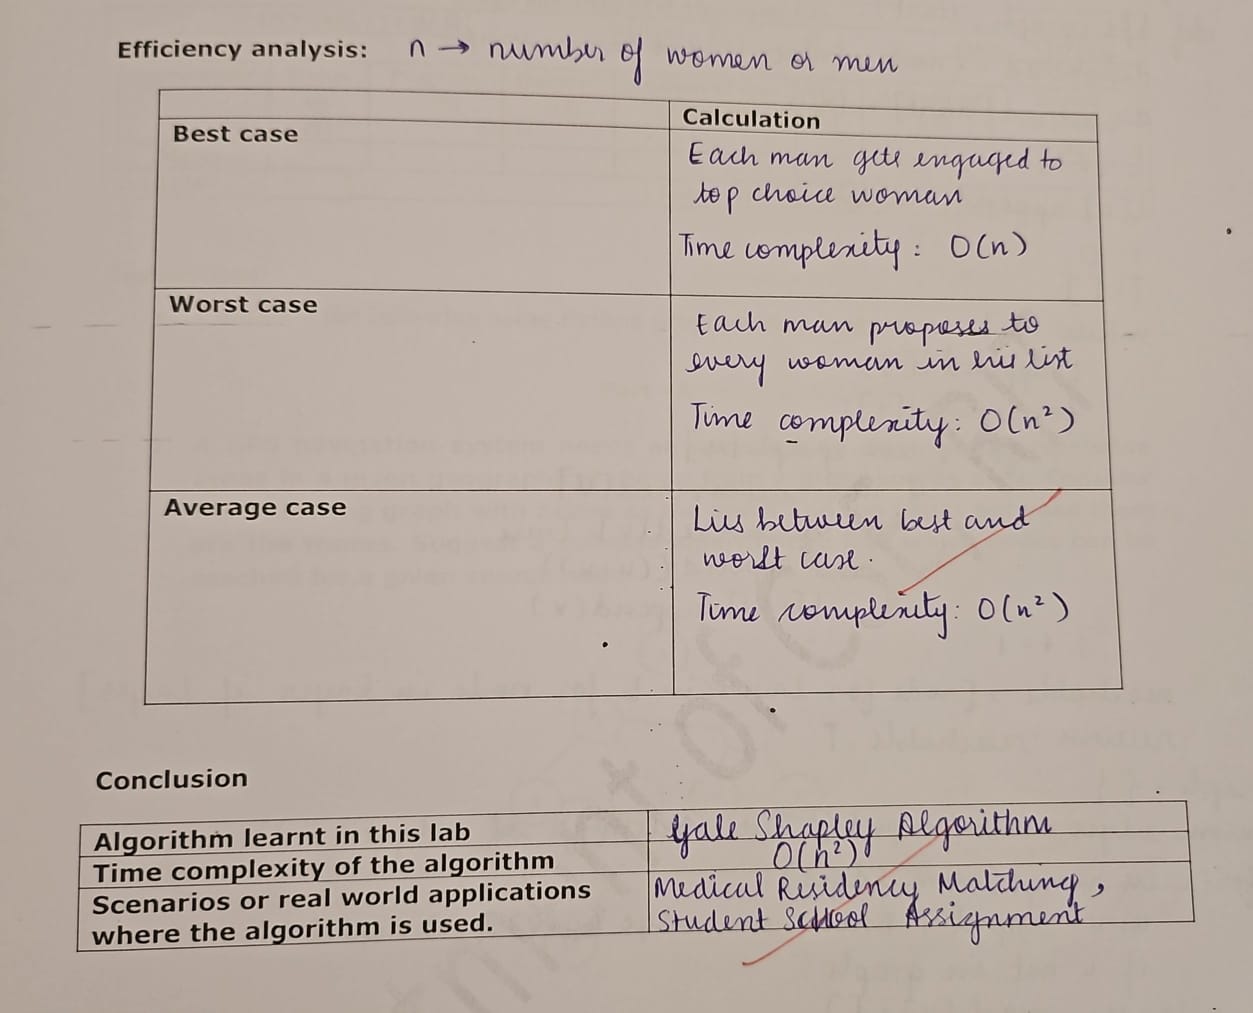 Efficiency analysis: n → number of women or men
Calculation
Best case
Each man gets engaged to
top choice woman
Time complexity: O(n)
Worst case
Each man proposes to
every woman in his list
Time complexity: O(n²)
Average case
Lies between best and
worst case.
Time complexity: O(n²)
Conclusion
Algorithm learnt in this lab Gale Shapley Algorithm
Time complexity of the algorithm O(n²)
Scenarios or real world applications Medical Residency Matching,
where the algorithm is used. Student School Assignment